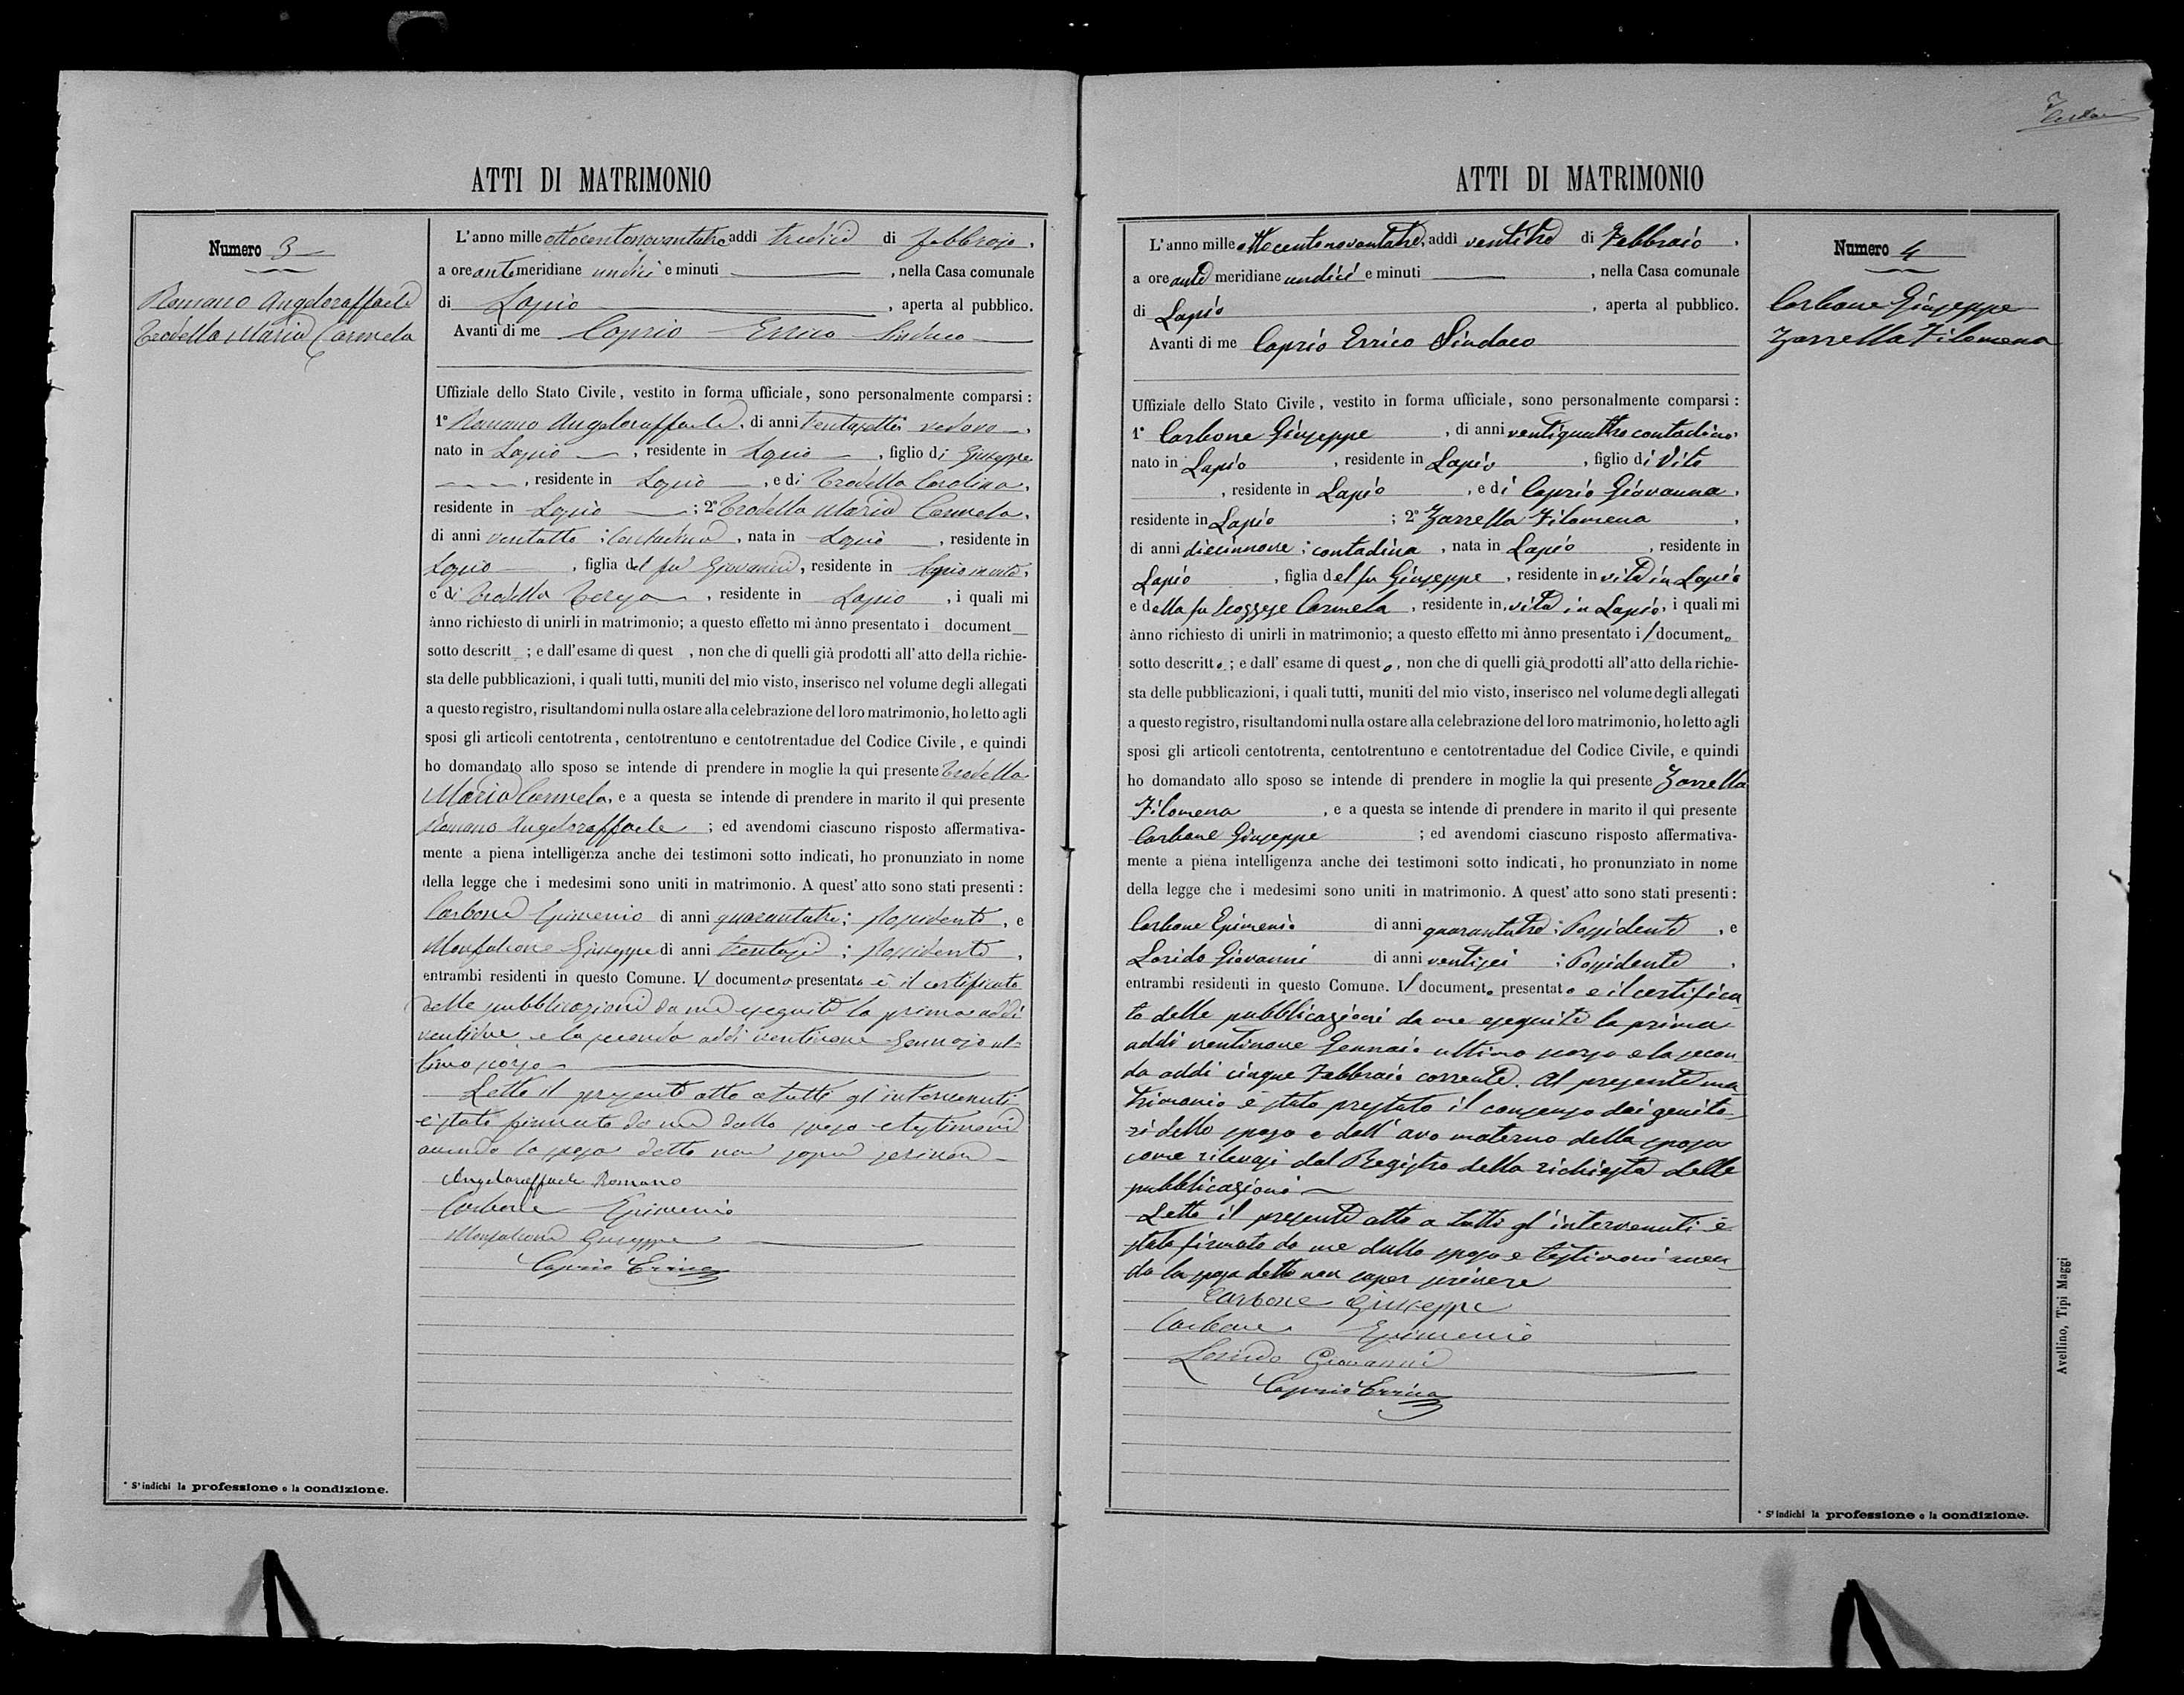 ATTI DI MATRIMONIO
Numero 3
Romano Angeloraffaele
Trodella Maria Carmela
L'anno mille ottocentonovantatre addì tredici di febbrajo,
a ore antemeridiane undici e minuti , nella Casa comunale
di Lapio , aperta al pubblico.
Avanti di me Caprio Errico Sindaco
Uffiziale dello Stato Civile, vestito in forma ufficiale, sono personalmente comparsi:
1° Romano Angeloraffaele, di anni vedovo,
nato in Lapio , residente in Lapio , figlio di Giuseppe
, residente in Lapio , e di Trodella Carolina,
residente in Lapio ; 2° Trodella Maria Carmela,
di anni ventotto ; Contadina , nata in Lapio , residente in
Lapio , figlia del fu Giovanni, residente in Lapio in vita,
e di Trodella Teresa , residente in Lapio , i quali mi
ànno richiesto di unirli in matrimonio; a questo effetto mi ànno presentato i document
sotto descritt ; e dall'esame di quest , non che di quelli già prodotti all'atto della richie-
sta delle pubblicazioni, i quali tutti, muniti del mio visto, inserisco nel volume degli allegati
a questo registro, risultandomi nulla ostare alla celebrazione del loro matrimonio, ho letto agli
sposi gli articoli centotrenta, centotrentuno e centotrentadue del Codice Civile, e quindi
ho domandato allo sposo se intende di prendere in moglie la qui presente Trodella
Maria Carmela, e a questa se intende di prendere in marito il qui presente
Romano Angeloraffaele ; ed avendomi ciascuno risposto affermativa-
mente a piena intelligenza anche dei testimoni sotto indicati, ho pronunziato in nome
della legge che i medesimi sono uniti in matrimonio. A quest'atto sono stati presenti:
Carbone Epimenio di anni quarantatre; Possidente, e
Monfalcone Giuseppe di anni trentasei ; Possidente,
entrambi residenti in questo Comune. Il documento presentato è il certificato
delle pubblicazioni da me eseguite la prima addì
ventidue e la seconda addì ventinove Gennajo ul-
timo scorso
Letto il presente atto a tutti gl'intervenuti
è stato firmato da me dallo sposo e testimoni
avendo la sposa detto non saper scrivere
Angeloraffaele Romano
Carbone Epimenio
Monfalcone Giuseppe
Caprio Errico
* S'indichi la professione o la condizione.
ATTI DI MATRIMONIO
Numero 4
Carbone Giuseppe
Zarrella Filomena
L'anno mille ottocentonovantatre, addì ventitre di Febbraio,
a ore ante meridiane undici e minuti , nella Casa comunale
di Lapio , aperta al pubblico.
Avanti di me Caprio Errico Sindaco
Uffiziale dello Stato Civile, vestito in forma ufficiale, sono personalmente comparsi:
1° Carbone Giuseppe , di anni ventiquattro contadino
nato in Lapio , residente in Lapio , figlio di Vito
, residente in Lapio , e di Caprio Giovanna,
residente in Lapio ; 2° Zarrella Filomena ,
di anni diecinnove ; contadina , nata in Lapio , residente in
Lapio , figlia del fu Giuseppe , residente in vita in Lapio
e della fu Scoggese Carmela , residente in vita in Lapio, i quali mi
ànno richiesto di unirli in matrimonio; a questo effetto mi ànno presentato il documento
sotto descritto ; e dall'esame di questo, non che di quelli già prodotti all'atto della richie-
sta delle pubblicazioni, i quali tutti, muniti del mio visto, inserisco nel volume degli allegati
a questo registro, risultandomi nulla ostare alla celebrazione del loro matrimonio, ho letto agli
sposi gli articoli centotrenta, centotrentuno e centotrentadue del Codice Civile, e quindi
ho domandato allo sposo se intende di prendere in moglie la qui presente Zarrella
Filomena , e a questa se intende di prendere in marito il qui presente
Carbone Giuseppe ; ed avendomi ciascuno risposto affermativa-
mente a piena intelligenza anche dei testimoni sotto indicati, ho pronunziato in nome
della legge che i medesimi sono uniti in matrimonio. A quest'atto sono stati presenti:
Carbone Epimenio di anni quarantatre ; Possidente , e
Lorido Giovanni di anni ventisei ; Possidente ,
entrambi residenti in questo Comune. Il documento presentato e il certifica
to delle pubblicazioni da me eseguite la prima
addì ventinove Gennaio ultimo scorso e la secon
da addì cinque Febbraio corrente. Al presente ma
trimonio è stato prestato il consenso dei genito-
ri dello sposo e dall'avo materno della sposa
come rilevasi dal Registro della richiesta delle
pubblicazioni
Letto il presente atto a tutti gl'intervenuti è
stato firmato da me dallo sposo e testimoni aven
do la sposa detto non saper scrivere
Carbone Giuseppe
Carbone Epimenio
Lorido Giovanni
Caprio Errico
* S'indichi la professione o la condizione.
Avellino, Tipi Maggi